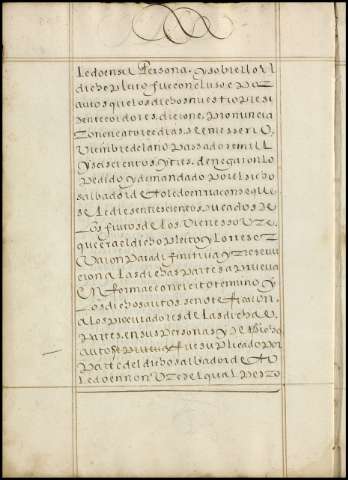 ledo en su Persona, y sobre llo el
dicho pleito fue concluso e Por
autos que los dichos nuestro Presi
dente e oidores dieron e Pronuncia
ron en catorce dias del mes de no
Viembre del año Passado de mill
y seiscientos y tres, denegaron lo
Pedido y demandado Por el dicho
salbador de toledo en racon de que
se le diesen trescientos ducados de
los frutos de los Vienes sobre
que era el dicho Pleito y lo rreser
Varon Para difinitiva y rrescivi
eron a las dichas Partes a Prueva
En forma con cierto termino y
los dichos autos se notificaron
a los Procuradores de las dichas
Partes, en sus Personas y de el dicho
auto de Prueva fue suplicado por
Parte del dicho salbador de to
ledo en nonbre del qual Pedro